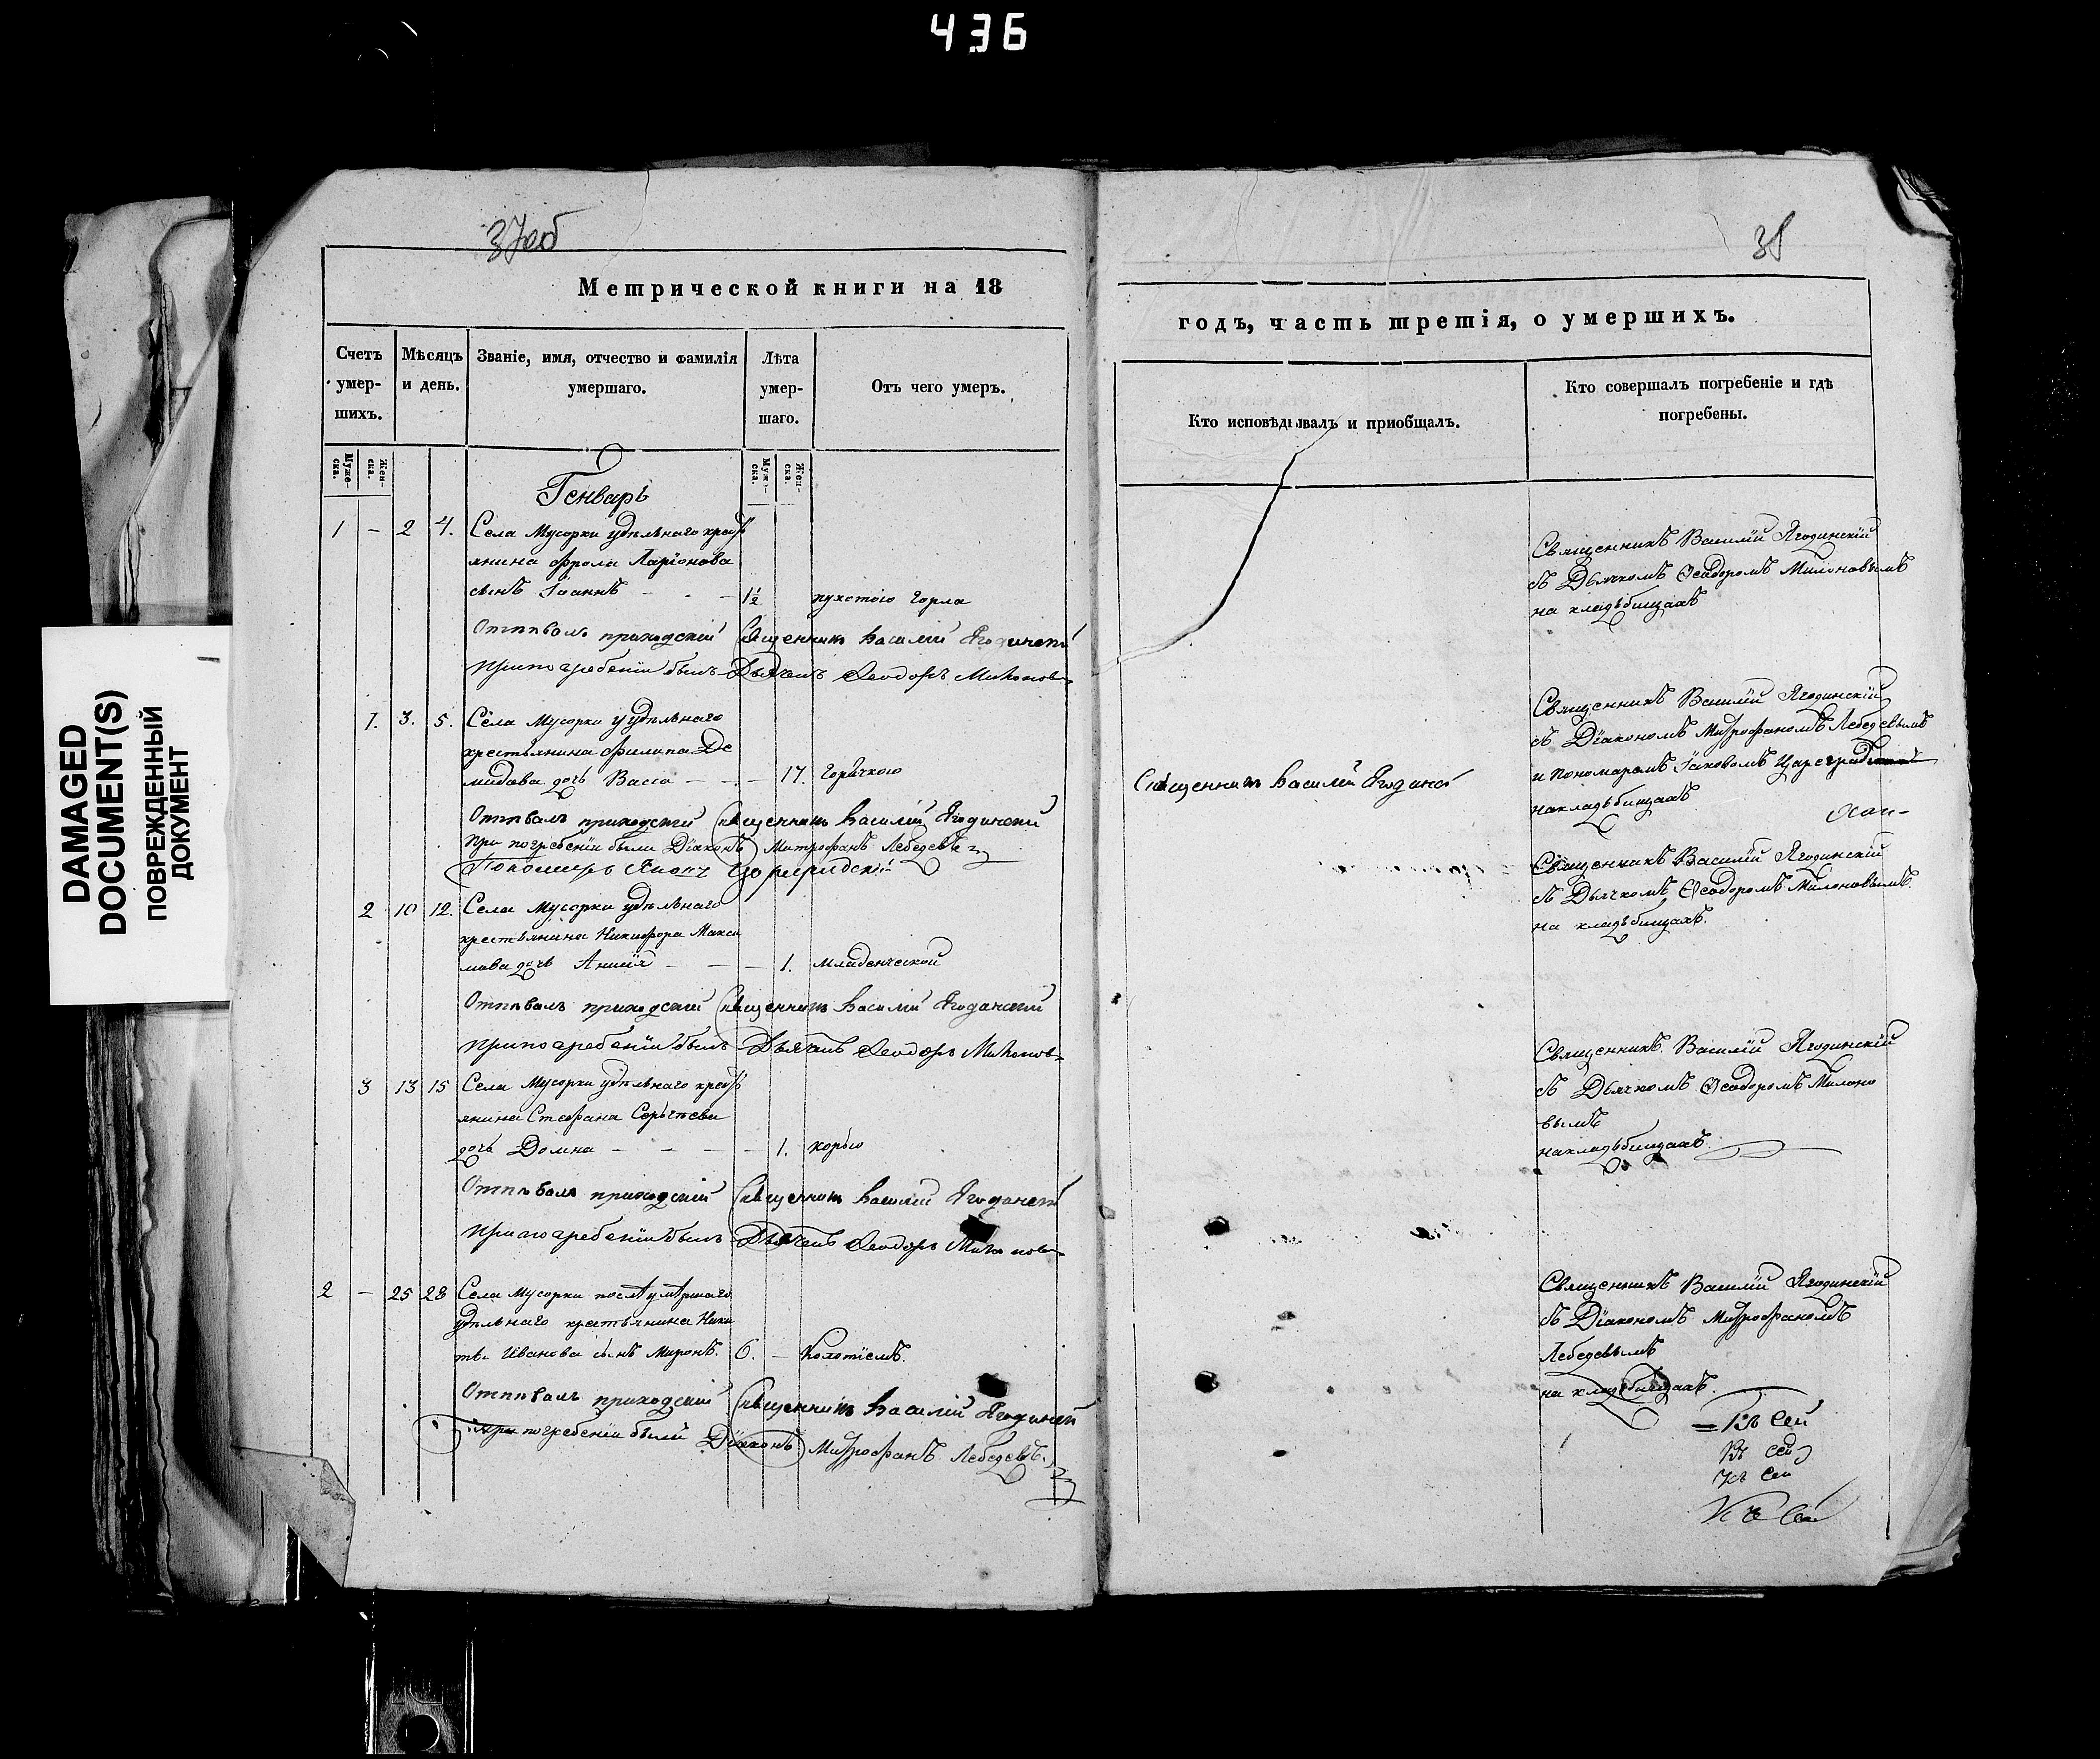 436
DAMAGED
DOCUMENT(S)
ПОВРЕЖДЕННЫЙ
ДОКУМЕНТ
37об
Метрической книги на 18
Счетъ умер-шихъ.
Мѣсяцъ и день.
Званіе, имя, отчество и фамилія умершаго.
Лѣта умер-шаго.
Отъ чего умеръ.
Муже-ска.
Жен-ска.
Муж-ска.
Жен-ска.
Генварь
1 – 2 4. Села Мусорки удѣльнаго кресть
янина Фрола Ларіонова
сынъ Іоаннъ – – – 1½ пухотою горла
Отпѣвалъ приходскій Священникъ Василій Ягодинскій
При погребеніи былъ Дьячекъ Ѳеодоръ Милоновъ
1. 3. 5. Села Мусорки удѣльнаго
крестьянина Филипа Де
мидова дочь Васса – – – 17. Горячкою
Отпѣвалъ приходскій Священникъ Василій Ягодинскій
При погребеніи были Діаконъ Митрофанъ Лебедевъ и
Пономарь Яковъ Цареградскій
2 10 12. Села Мусорки удѣльнаго
крестьянина Никифора Макси
мова дочь – – – 1. младенческой
Отпѣвалъ приходскій Священникъ Василій Ягодинскій
При погребеніи былъ Дьячекъ Ѳеодоръ Милоновъ
3 13 15 Села Мусорки удѣльнаго кресть
янина Стефана Сергѣева
дочь Домна – – – – 1. корью
Отпѣвалъ приходскій Священникъ Василій Ягодинскій
При погребеніи былъ Дьячекъ Ѳеодоръ Милоновъ
2 – 25 28 Села Мусорки послѣ умѣршаго
удѣльнаго крестьянина Ники
ты Иванова сынъ Миронъ. 6. –
Отпѣвалъ приходскій Священникъ Василій Ягодинскій
При погребеніи были Діаконъ Митрофанъ Лебедевъ.
38
годъ, часть третія, о умершихъ.
Кто исповѣдывалъ и приобщалъ.
Кто совершалъ погребеніе и гдѣ погребены.
Священникъ Василій Ягодинскій
съ Дьячкомъ Ѳеодоромъ Милоновымъ
на кладьбищахъ
Священникъ Василій Ягодинскій
съ Діакономъ Митрофаномъ Лебедевымъ
и Пономаремъ Іаковомъ Цареград
на кладьбищахъ
Священникъ Василій Ягодинскій
Священникъ Василій Ягодинскій
съ Дьячкомъ Ѳеодоромъ Милоновымъ.
на кладьбищахъ.
Священникъ Василій Ягодинскій
съ Дьячкомъ Ѳеодоромъ Милоно
вымъ
на кладьбищахъ.
Священникъ Василій Ягодинскій
съ Діакономъ Митрофаномъ
Лебедевымъ
на кладьбищахъ.